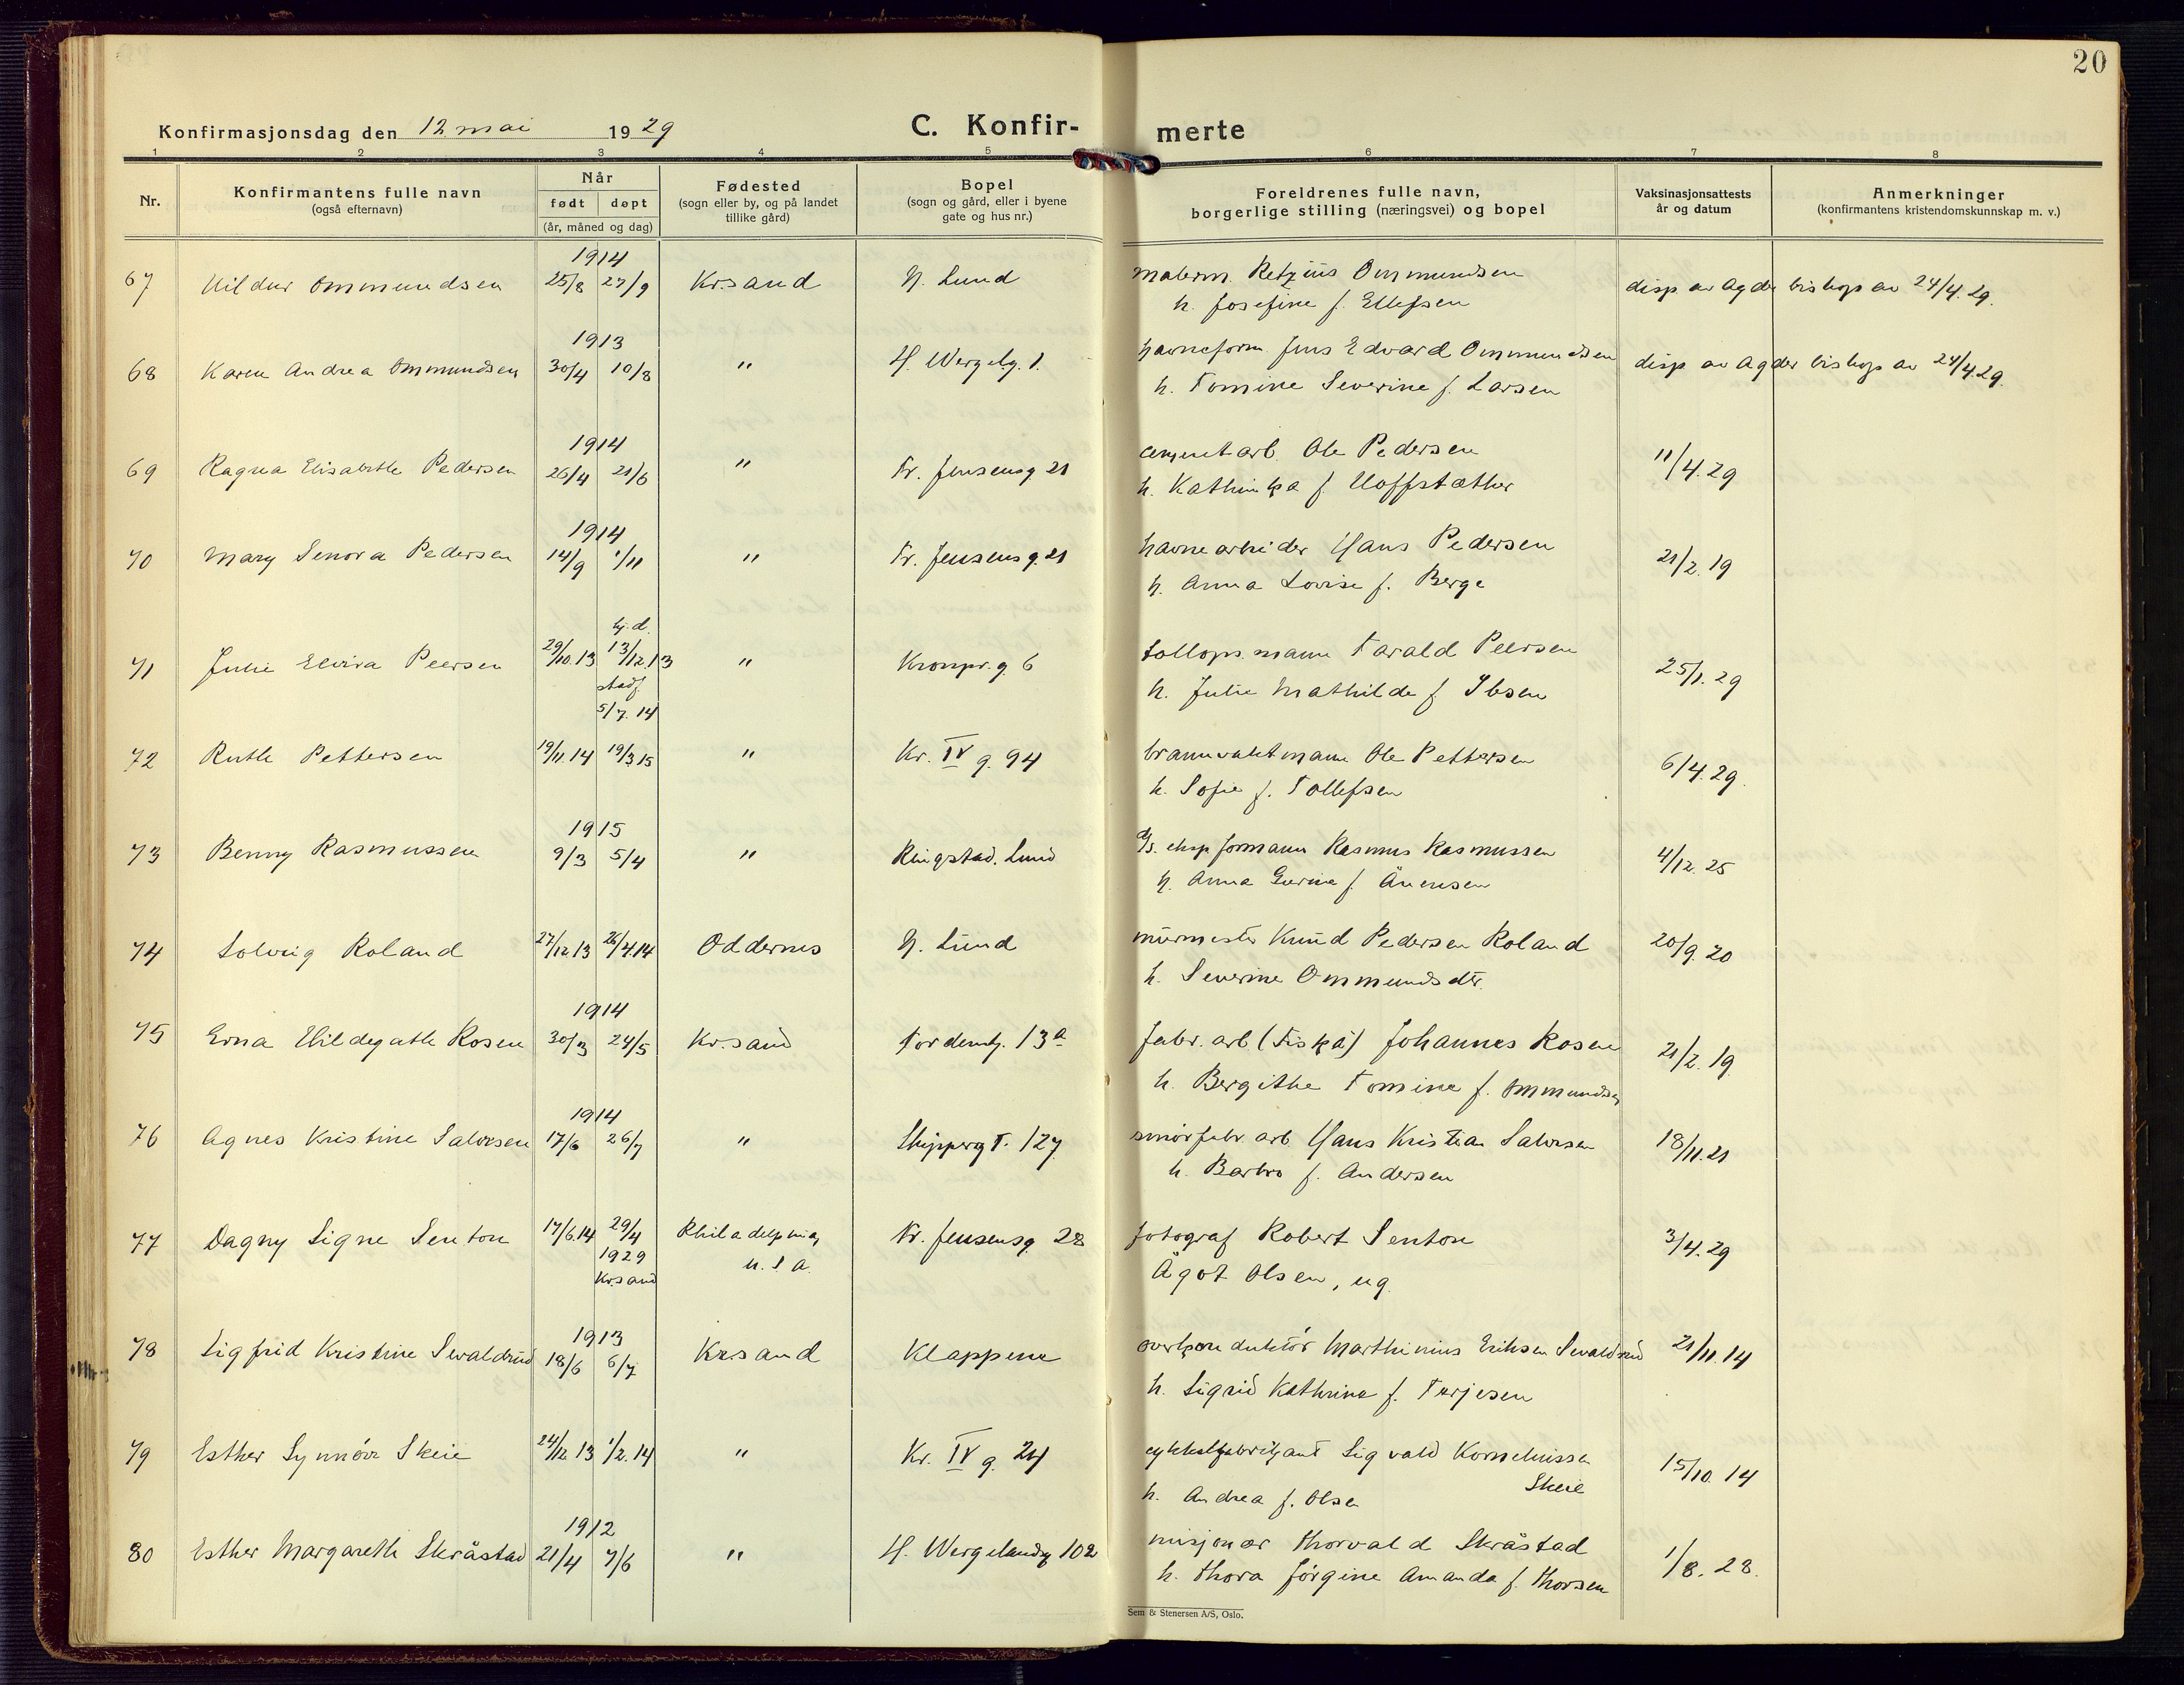 20
Konfirmasjonsdag den 12. mai 1929
C. Konfir-
merte
1 2 3 4 5 6 7 8
Nr.
Konfirmantens fulle navn
(også efternavn)
Når
født døpt
(år, måned og dag)
Fødested
(sogn eller by, og på landet
tillike gård)
Bopel
(sogn og gård, eller i byene
gate og hus nr.)
Foreldrenes fulle navn,
borgerlige stilling (næringsvei) og bopel
Vaksinasjonsattests
år og datum
Anmerkninger
(konfirmantens kristendomskunnskap m. v.)
1914
67 Hildur Ommundsen 25/8 27/9 Kr.sand N. Lund malerm. Retzius Ommundsen disp av Agder biskop av 24/4.29.
h. Josefine f. Ellefsen
1913
68 Karen Andrea Ommundsen 30/4 10/8 " H. Wergelg. 1. havneform. Jens Edvard Ommundsen disp av Agder biskop av 24/4.29.
h. Tomine Severine f. Larsen
1914
69 Ragna Elisabeth Pedersen 26/4 21/6 " Kr. Jensensg 21 cementarb. Ole Pedersen 11/4.29
h. Kathinka f. Hoffstæther
1914
70 Mary Senora Pedersen 14/9 1/11 " Kr. Jensensg. 21 havnearbeider Hans Pedersen 21/2.19
h. Anna Lovise f. Berge
hj.d.
71 Julie Elvira Peersen 29/10.13 13/12.13 " Kronpr.g. 6 tollops.mann Tarald Peersen 25/1.29
stadf.
h. Julie Mathilde f. Ibsen
5/7.14
72 Ruth Pettersen 19/11.14 19/3 15 " Kr. IV g. 94 brannvaktmann Ole Pettersen 6/4.29.
h. Sofie f. Tollefsen
1915
73 Benny Rasmussen 9/3 5/4 " Ringstad. Lund eksp formann Rasmus Rasmussen 4/12.25
h. Anna Gurine f. Ånensen
74 Solveig Roland 27/12.13 26/4.14 Oddernes N. Lund murmester Knud Pedersen Roland 20/9.20
h. Severine Ommundsdtr.
1914
75 Erna Hildegarth Rosen 30/3 24/5 Kr.sand Tordensg. 13a fabr. arb (Fiskå) Johannes Rosen 21/2.19
h. Bergithe Tomine f. Ommundsen
1914
76 Agnes Kristine Salvesen 17/6 26/7 " Skippergt. 127 smørfabr. arb. Hans Kristian Salvesen 18/11.21
h. Barbro f. Andersen
77 Dagny Signe Senton 17/6.14 29/4 Philadelphia, Kr. Jensensg 28 fotograf Robert Senton 3/4.29
1929 U.S.A.
Kr.sand Ågot Olsen, ug.
1913
78 Sigfrid Kristine Sevaldrud 18/6 6/7 Kr.sand Klappene overkonduktør Marthinius Eriksen Sevaldrud 21/11.14
h. Sigrid Kathrine f. Terjesen
79 Esther Synnøve Skeie 24/12.13 1/2.14 " Kr. IV g. 24 cykkelfabrikant Sigvald Korneliussen 15/10.14
Skeie
h. Andrea f. Olsen
1912
80 Esther Margareth Skråstad 21/4 7/6 " H. Wergelandsg 102 misjonær Thorvald Skråstad 1/8.28.
h. Thora Jørgine Amanda f. Thorsen
Sem & Stenersen A/S, Oslo.